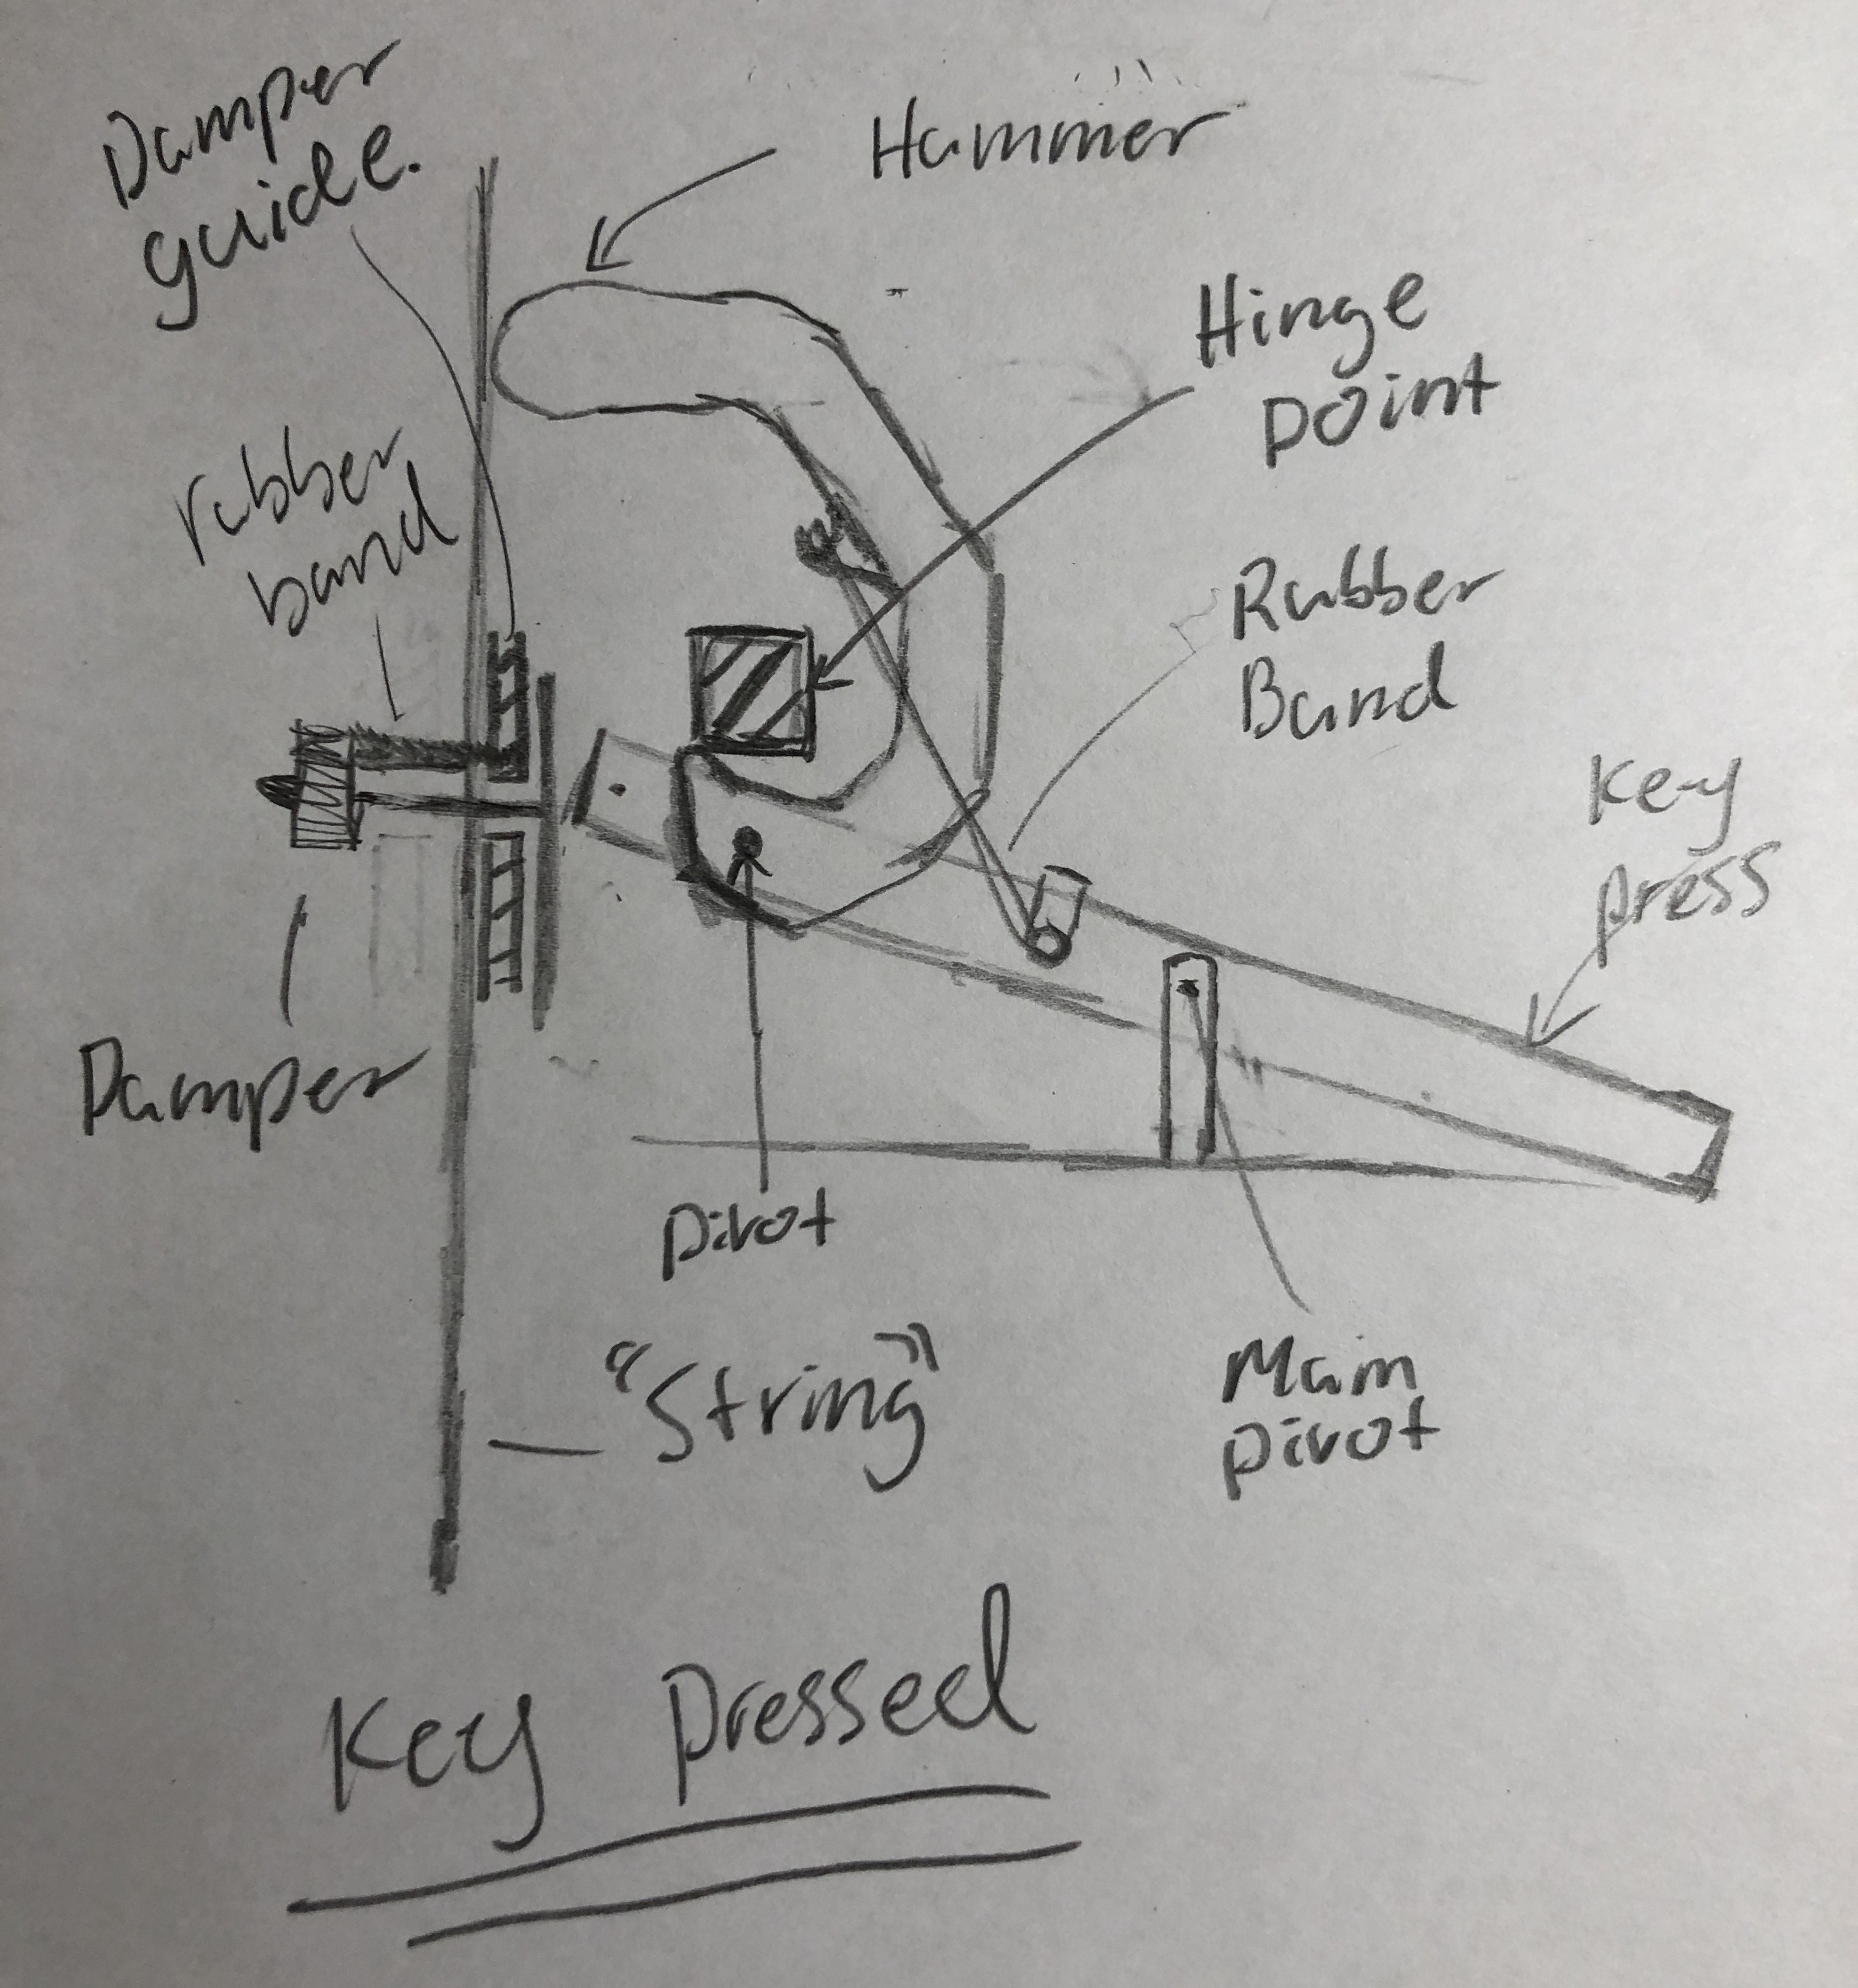 Damper
guide.
Hammer
Hinge
point
rubber
band
Rubber
Band
Key
press
Damper
pivot
"String"
Main
pivot
Key pressed